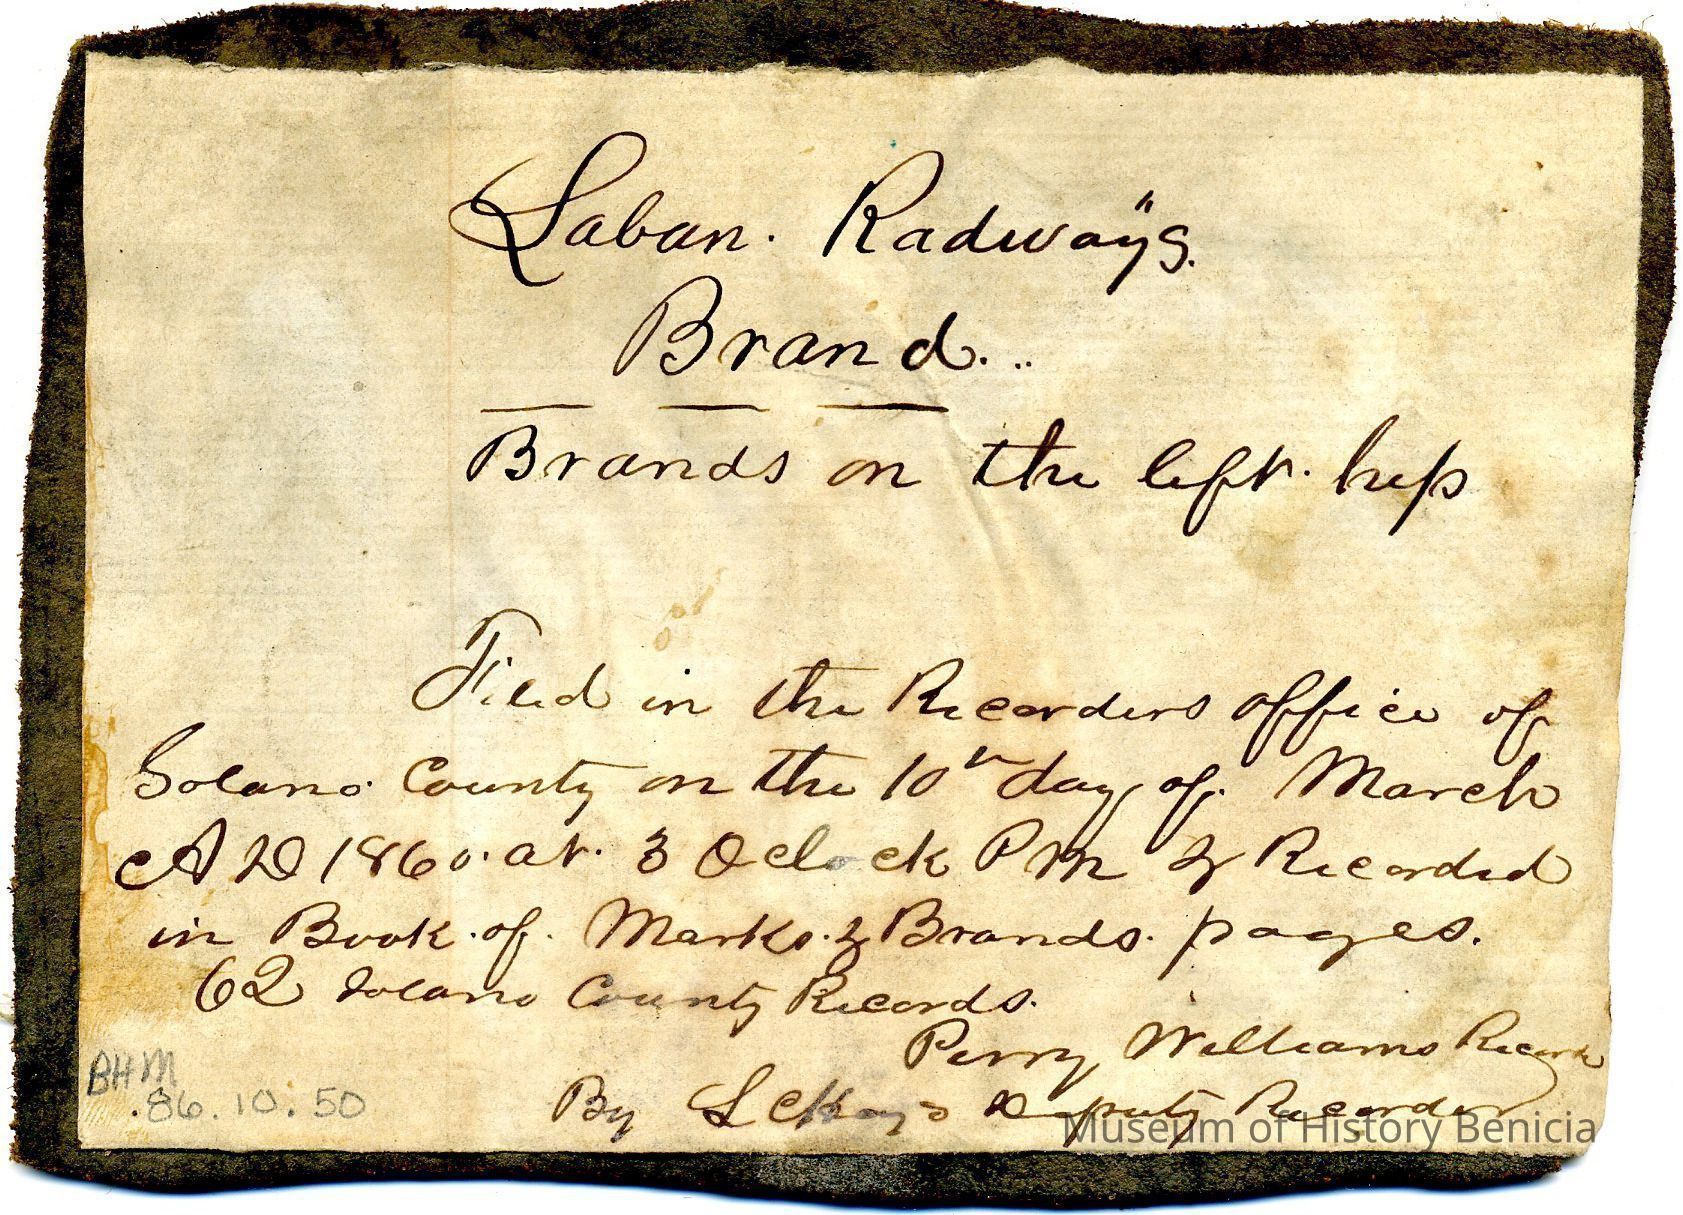 Laban. Radway's.
Brand...
Brands on the left. hip
Filed in the Recorders office of
Solano County on the 10th day of. March
A D 1860. at. 3 Oclock P M & Recorded
in Book. of. Marks. & Brands. pages.
62 Solano County Records.
Perry Williams Recorder
By L Deputy Recorder
BHM
.86.10.50
Museum of History Benicia